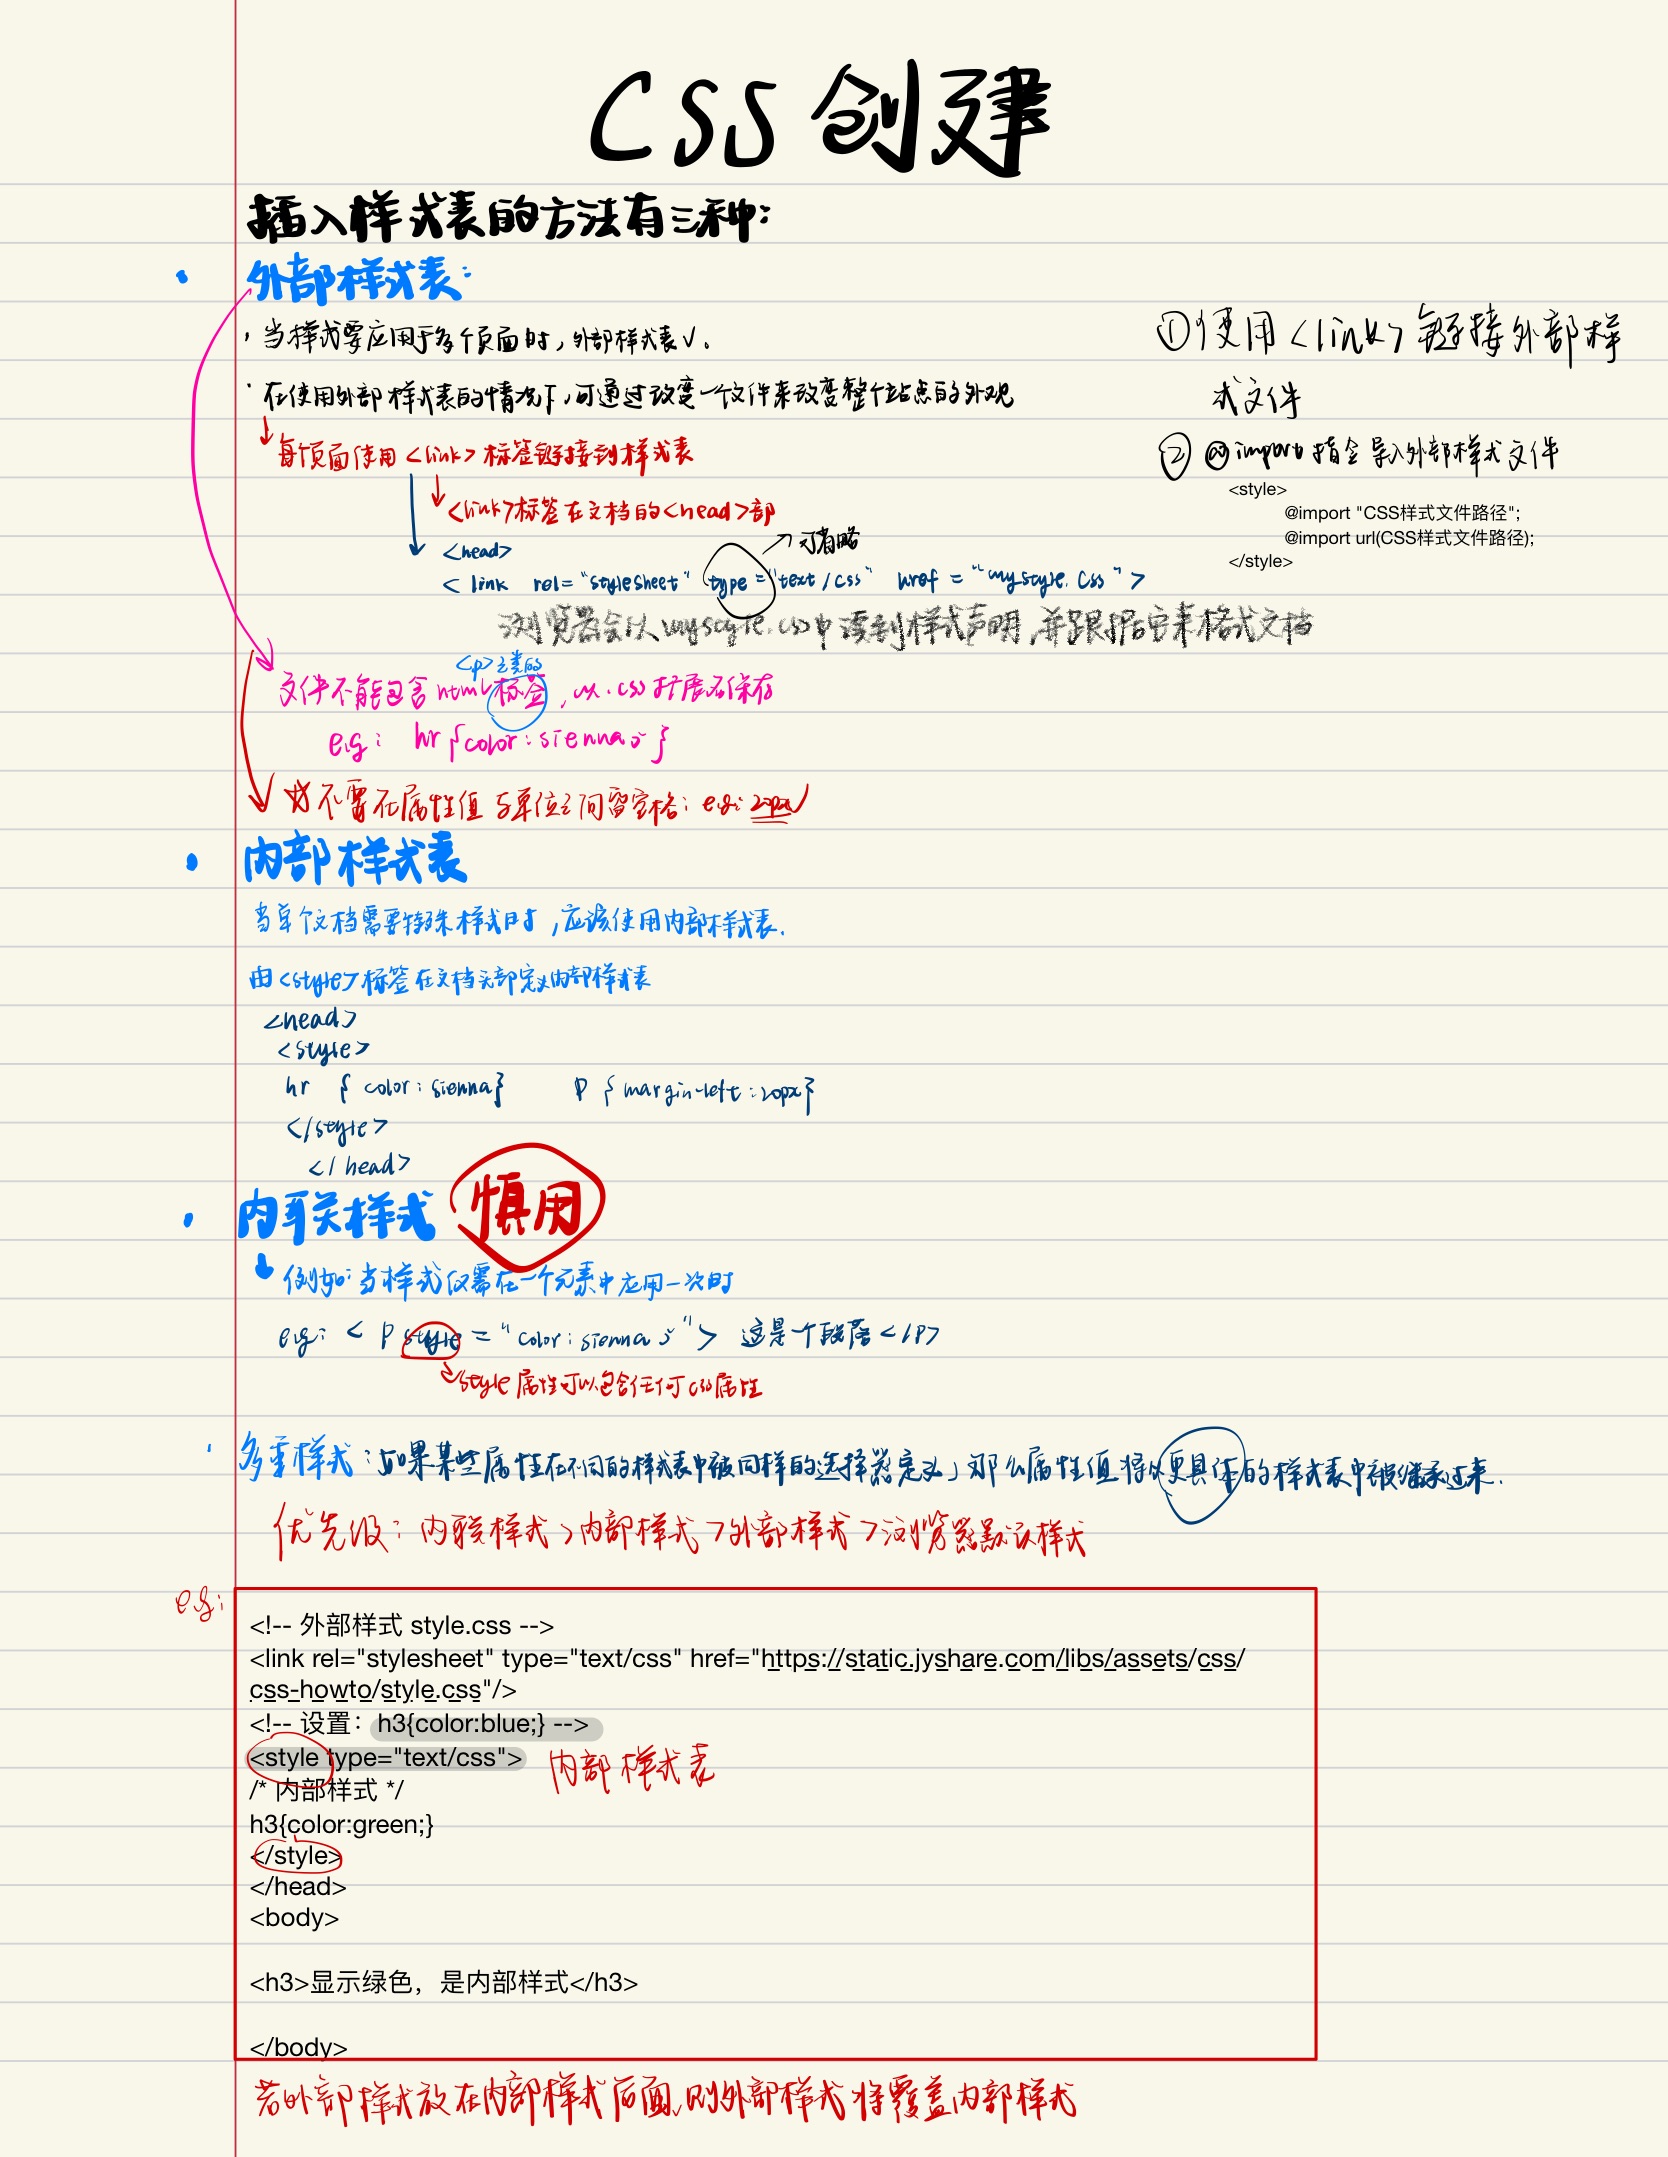 CSS 创建
插入样式表的方法有三种:
· 外部样式表:
· 当样式要应用于多个页面时,外部样式表√.
· 在使用外部样式表的情况下,可通过改变一个文件来改变整个站点的外观
每个页面使用<link>标签链接到样式表
<link>标签在文档的<head>部
<head>
可省略
< link rel="stylesheet" type="text/css" href="mystyle.css">
浏览器会从mystyle.css中读到样式声明,并跟据它来格式文档
①使用<link>链接外部样
式文件
② @import 指令导入外部样式文件
<style>
@import "CSS样式文件路径";
@import url(CSS样式文件路径);
</style>
<p>之类的
文件不能包含html标签,以.css扩展名保存
e.g: hr{color:sienna;}
☆不要在属性值与单位之间留空格: e.g: 20px
· 内部样式表
当单个文档需要特殊样式时,应该使用内部样式表.
由<style>标签在文档头部定义内部样式表
<head>
<style>
hr { color:sienna} p { margin-left:20px}
</style>
</head>
· 内联样式 慎用
例如:当样式仅需在一个元素中应用一次时
e.g: < p style = "color:sienna;"> 这是个段落 </p>
style属性可以包含任何css属性
· 多重样式:如果某些属性在不同的样式表中被同样的选择器定义,那么属性值将从更具体的样式表中被继承过来.
优先级: 内联样式>内部样式>外部样式>浏览器默认样式
e.g:
<!-- 外部样式 style.css -->
<link rel="stylesheet" type="text/css" href="https://static.jyshare.com/libs/assets/css/
css-howto/style.css"/>
<!-- 设置：h3{color:blue;} -->
<style type="text/css"> 内部样式表
/* 内部样式 */
h3{color:green;}
</style>
</head>
<body>
<h3>显示绿色，是内部样式</h3>
</body>
若外部样式放在内部样式后面,则外部样式将覆盖内部样式